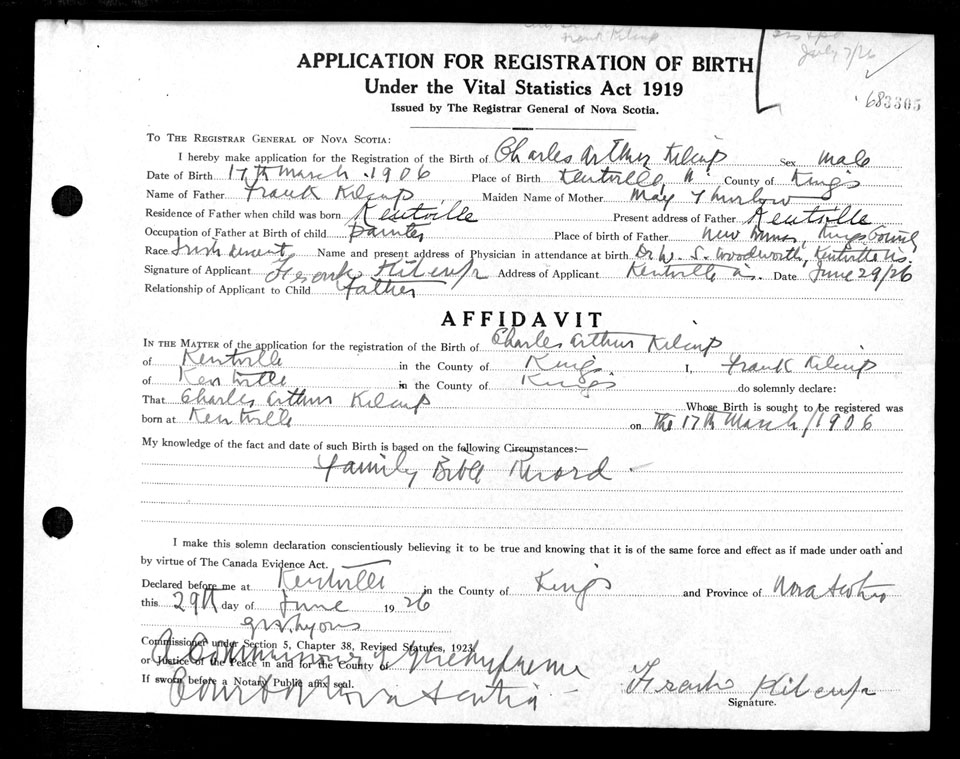 Frank Kilcup
July 7/26
683305
APPLICATION FOR REGISTRATION OF BIRTH
Under the Vital Statistics Act 1919
Issued by The Registrar General of Nova Scotia.
TO THE REGISTRAR GENERAL OF NOVA SCOTIA:
I hereby make application for the Registration of the Birth of Charles Arthur Kilcup Sex male
Date of Birth 17th March 1906 Place of Birth Kentville, County of Kings
Name of Father Frank Kilcup Maiden Name of Mother May Thurlow
Residence of Father when child was born Kentville Present address of Father Kentville
Occupation of Father at Birth of child painter Place of birth of Father New Minas, Kings County
Race Irish descent Name and present address of Physician in attendance at birth Dr W. S. Woodworth, Kentville N.S.
Signature of Applicant Frank Kilcup Address of Applicant Kentville Date June 29/26
Relationship of Applicant to Child father
AFFIDAVIT
IN THE MATTER of the application for the registration of the Birth of Charles Arthur Kilcup
of Kentville in the County of Kings I, Frank Kilcup
of Kentville in the County of Kings do solemnly declare:
That Charles Arthur Kilcup Whose Birth is sought to be registered was
born at Kentville on the 17th March/1906
My knowledge of the fact and date of such Birth is based on the following Circumstances:—
Family Bible Record -
I make this solemn declaration conscientiously believing it to be true and knowing that it is of the same force and effect as if made under oath and
by virtue of The Canada Evidence Act.
Declared before me at Kentville in the County of Kings and Province of Nova Scotia
this 29th day of June 1926
Lyons
Commissioner under Section 5, Chapter 38, Revised Statutes, 1923
A Commissioner of the Supreme
or Justice of the Peace in and for the County of
If sworn before a Notary Public affix seal.
Court of Nova Scotia - Frank Kilcup
Signature.